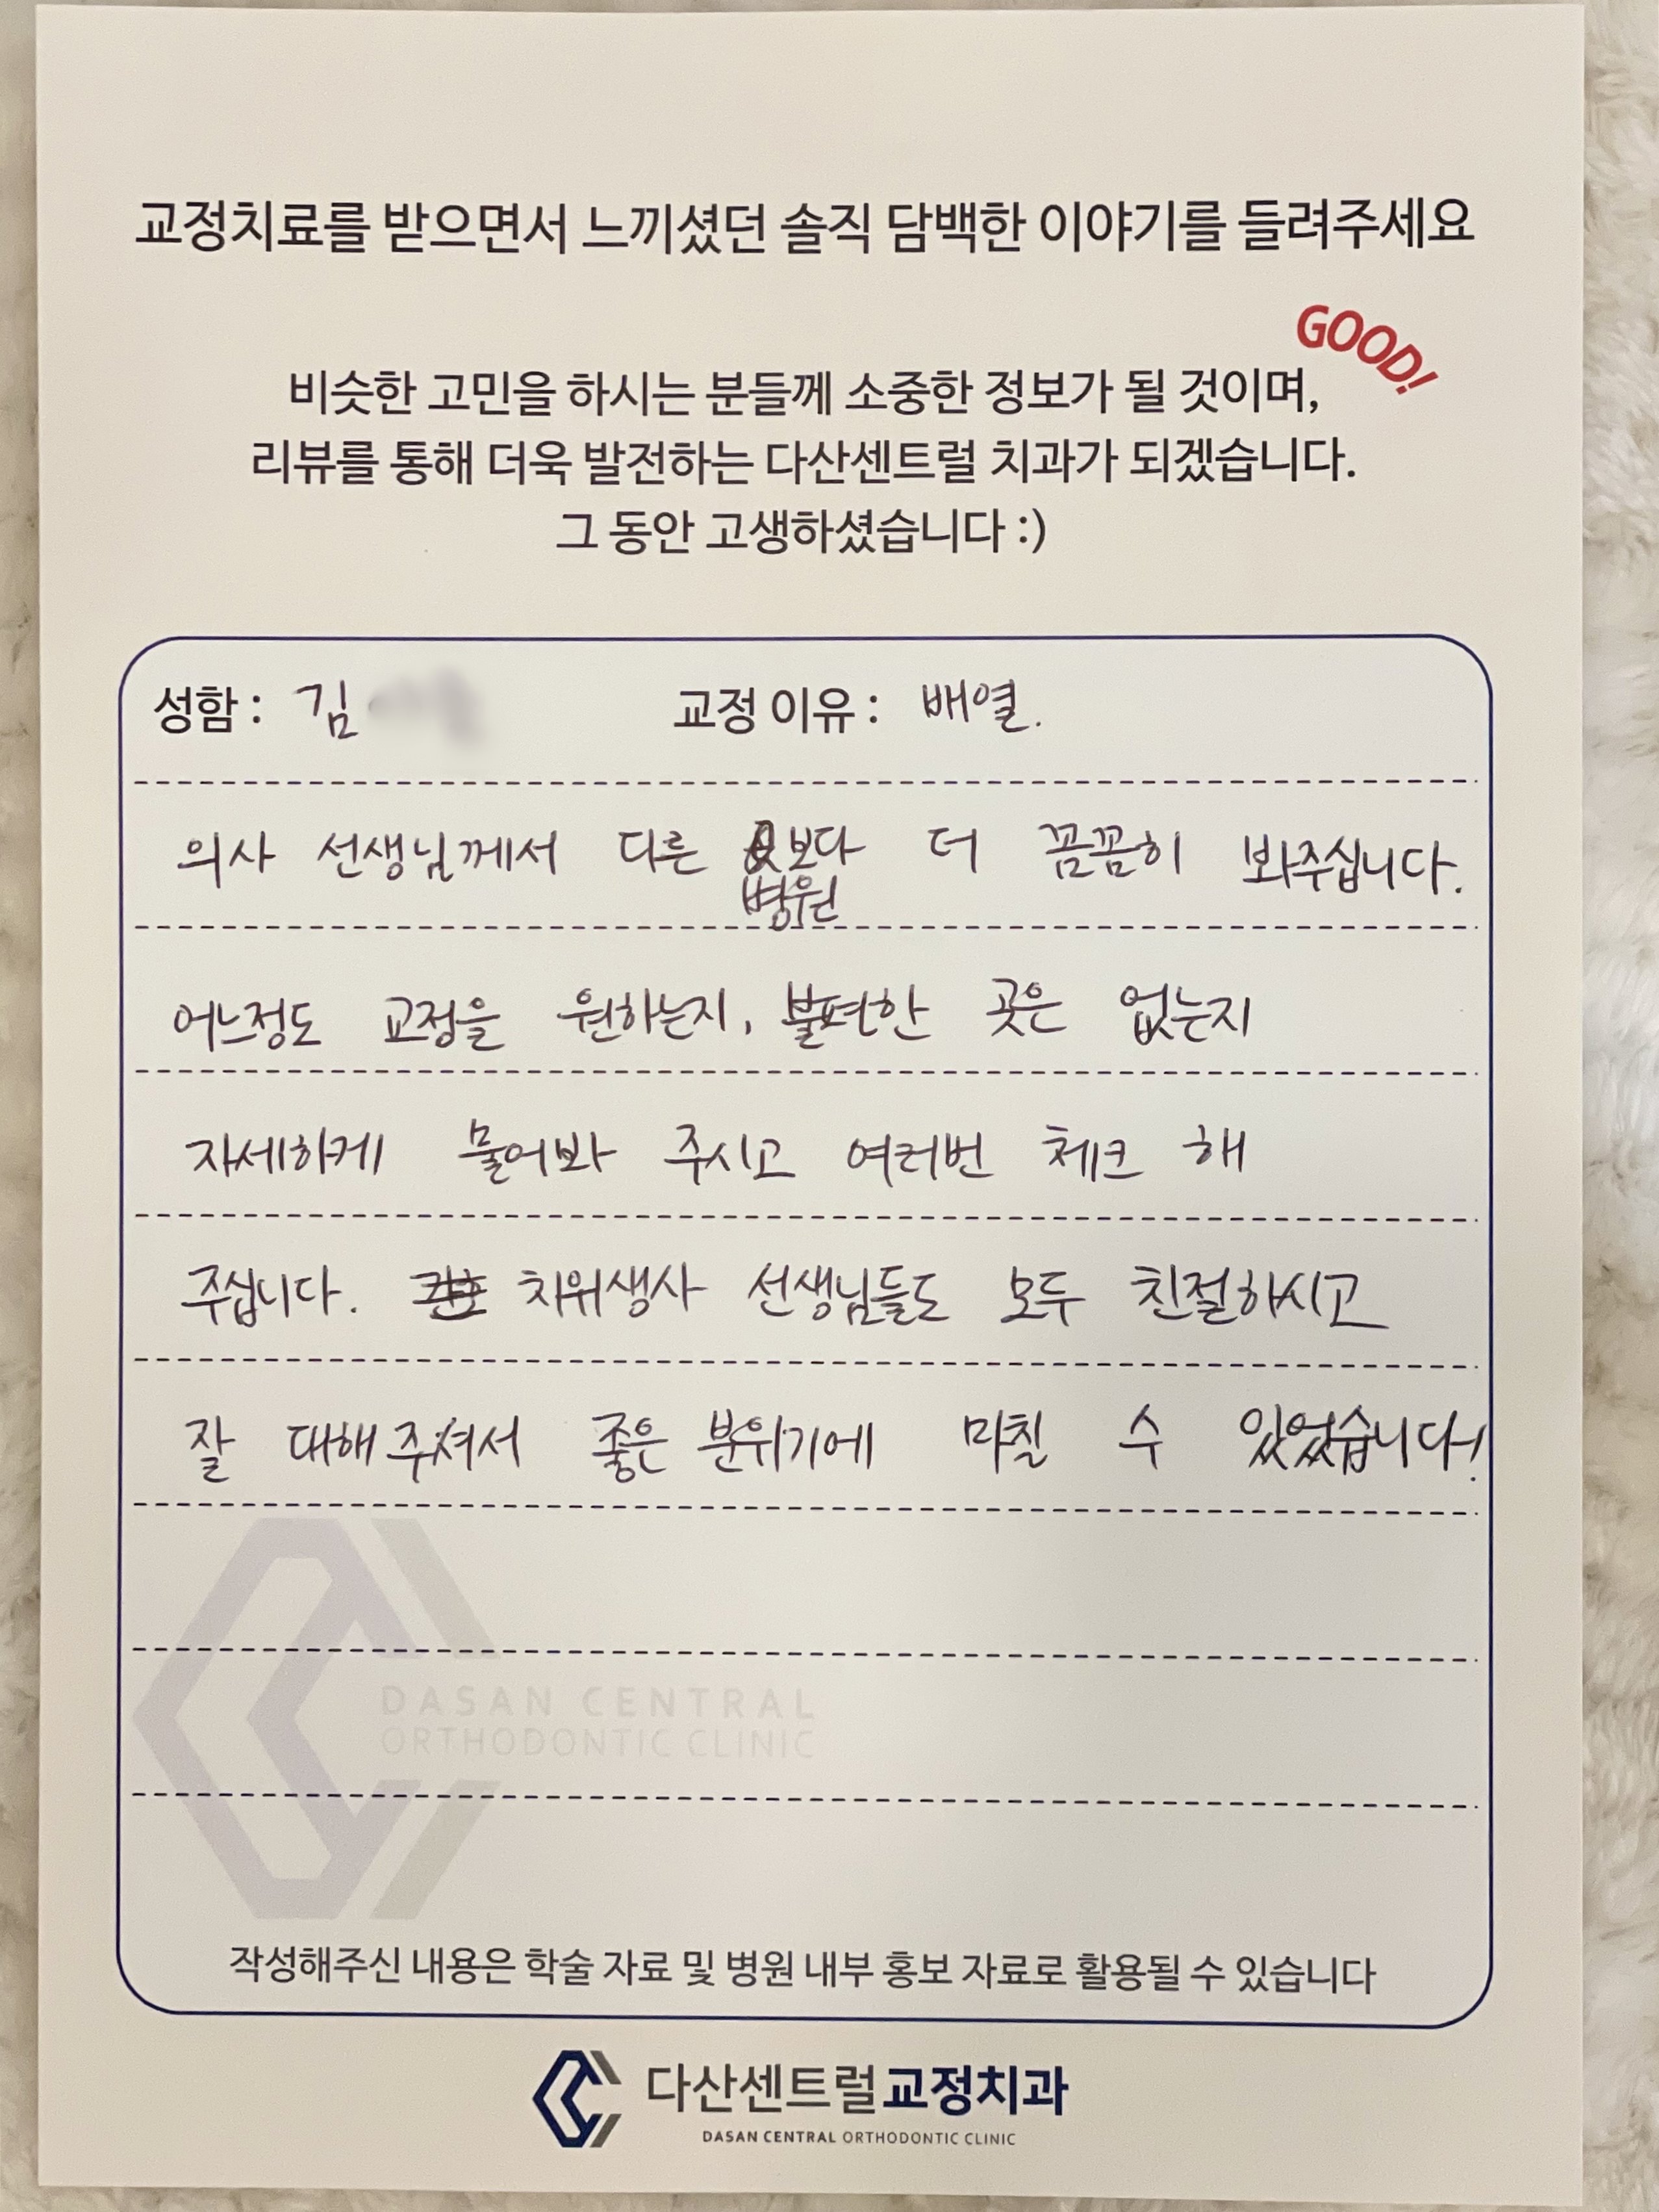 교정치료를 받으면서 느끼셨던 솔직 담백한 이야기를 들려주세요
GOOD!
비슷한 고민을 하시는 분들께 소중한 정보가 될 것이며,
리뷰를 통해 더욱 발전하는 다산센트럴 치과가 되겠습니다.
그 동안 고생하셨습니다 :)
성함 : 김 교정 이유 : 배열.
의사 선생님께서 다른 보다 더 꼼꼼히 봐주십니다.
병원
어느정도 교정을 원하는지, 불편한 곳은 없는지
자세하게 물어봐 주시고 여러번 체크 해
주십니다. 치위생사 선생님들도 모두 친절하시고
잘 대해주셔서 좋은 분위기에 마칠 수 있었습니다!
DASAN CENTRAL
ORTHODONTIC CLINIC
작성해주신 내용은 학술 자료 및 병원 내부 홍보 자료로 활용될 수 있습니다
다산센트럴교정치과
DASAN CENTRAL ORTHODONTIC CLINIC